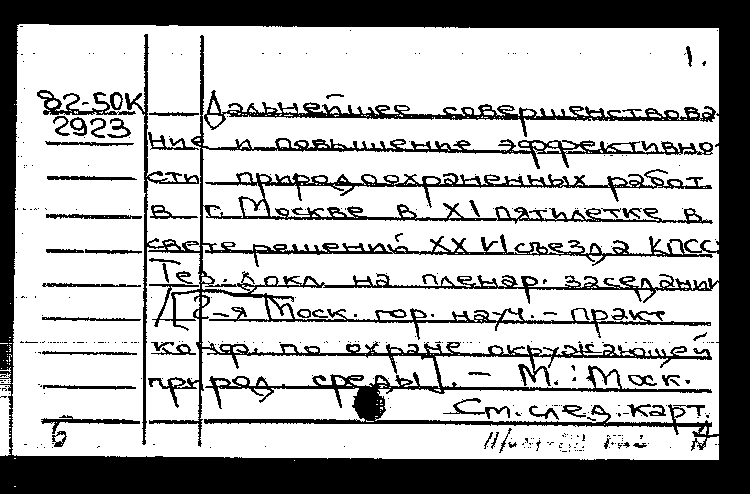 1.
82-50К
2923
Дальнейшее совершенствова
ние и повышение эффективно
сти природоохраненных работ
в г. Москве в XI пятилетке в
свете решений XXVI съезда КПСС
Тез. докл. на пленар. заседании
/[2-я Моск. гор. науч. - практ
конф. по охране окружающей
природ. среды]. - М.: Моск.
См. след. карт.
б